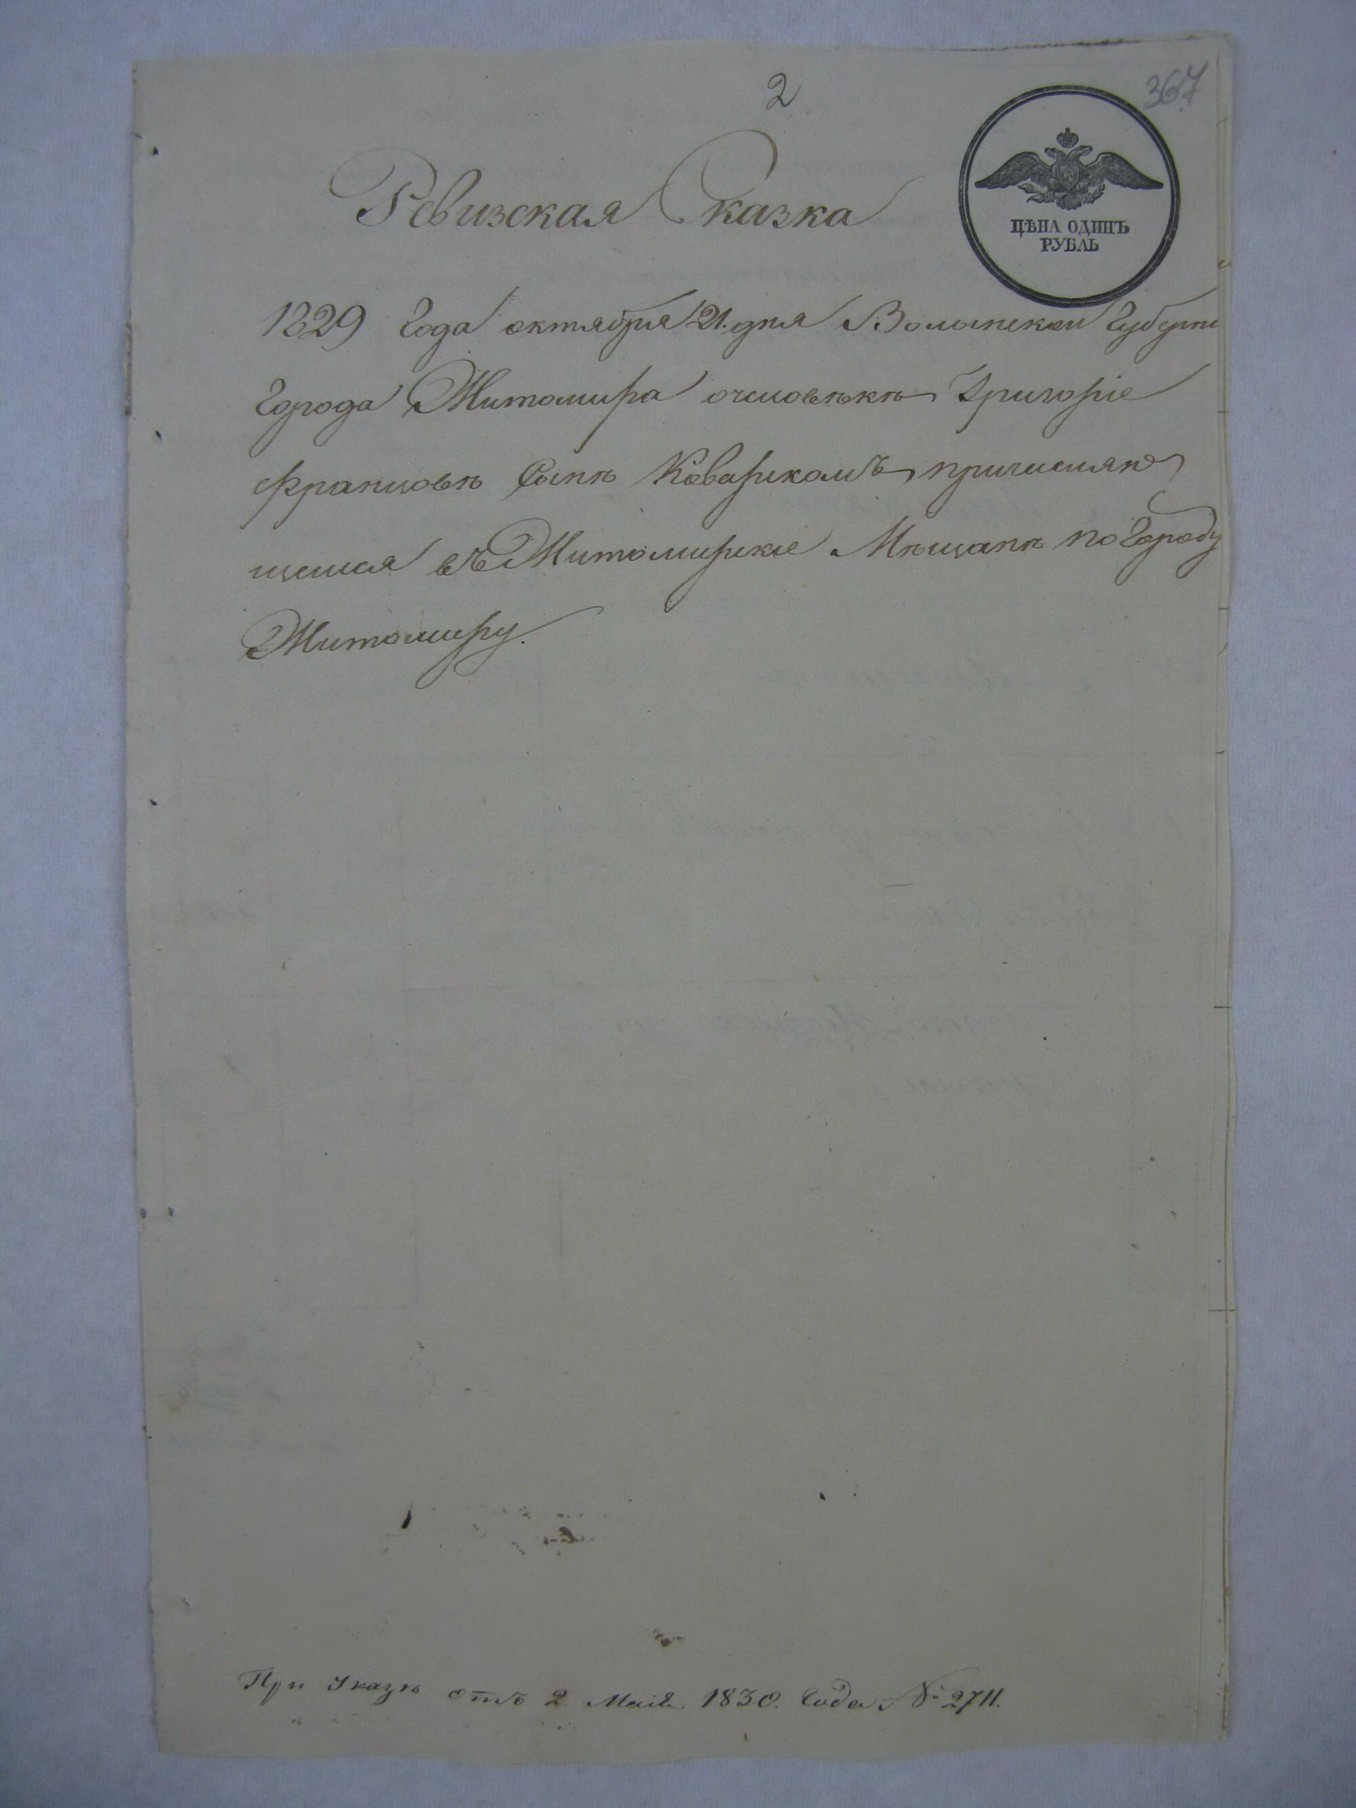 2
367
ЦѢНА ОДИНЪ
РУБЛЬ
Ревизская Сказка
1829 Года октября 21. дня Волынской Губерни
Города Житомира очеловѣкѣ Григорiе
Францовѣ Сынѣ Коварикомъ причисляю
щемся въ Житомирскiе Мѣщанѣ по Городу
Житомиру.
При Указѣ отъ 2 Маiя 1830. Года № 2711.